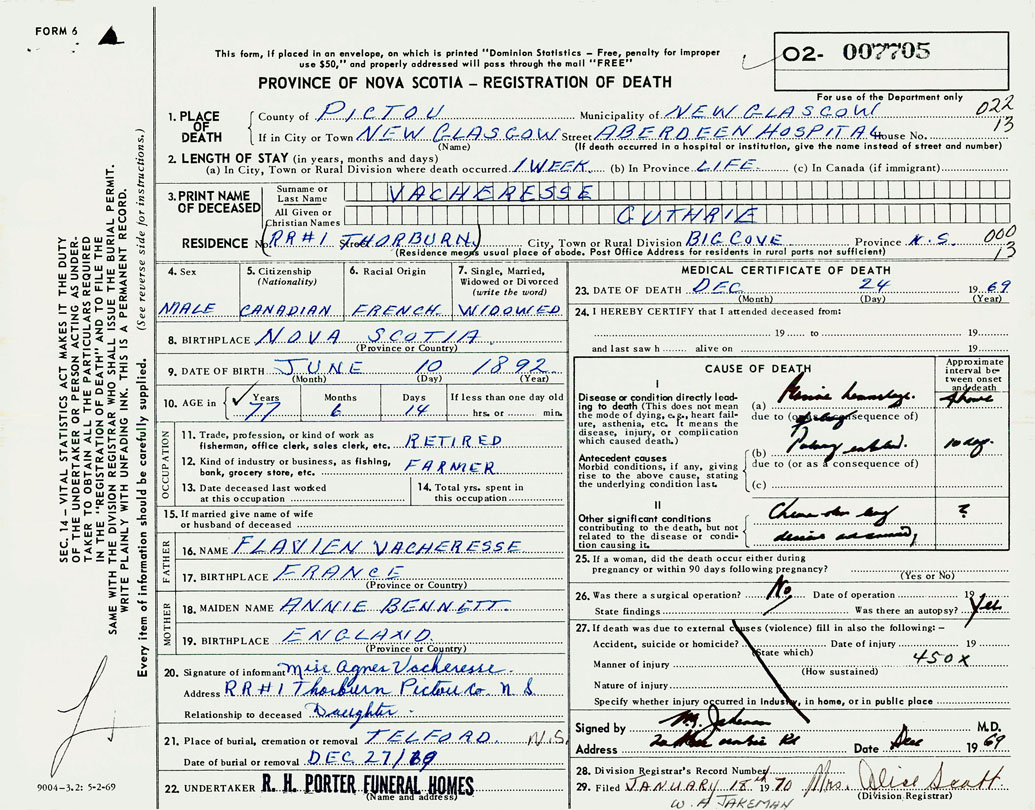 FORM 6
This form, if placed in an envelope, on which is printed "Dominion Statistics – Free, penalty for improper
use $50," and properly addressed will pass through the mail "FREE"
O2- 007705
PROVINCE OF NOVA SCOTIA – REGISTRATION OF DEATH
For use of the Department only
022
13
1. PLACE OF DEATH
County of PICTOU Municipality of NEW GLASGOW
If in City or Town NEW GLASGOW Street ABERDEEN HOSPITAL House No.
(Name) (If death occurred in a hospital or institution, give the name instead of street and number)
2. LENGTH OF STAY (in years, months and days)
(a) In City, Town or Rural Division where death occurred 1 WEEK (b) In Province LIFE (c) In Canada (if immigrant)
3. PRINT NAME OF DECEASED
Surname or Last Name VACHERESSE
All Given or Christian Names GUTHRIE
RESIDENCE No. (RR#1 Street THORBURN) City, Town or Rural Division BIG COVE Province N.S. 000
13
(Residence means usual place of abode. Post Office Address for residents in rural parts not sufficient)
4. Sex
MALE
5. Citizenship
(Nationality)
CANADIAN
6. Racial Origin
FRENCH
7. Single, Married,
Widowed or Divorced
(write the word)
WIDOWED
8. BIRTHPLACE NOVA SCOTIA
(Province or Country)
9. DATE OF BIRTH JUNE 10 1892
(Month) (Day) (Year)
10. AGE in ✓ Years Months Days If less than one day old
77 6 14 hrs. or min.
OCCUPATION
11. Trade, profession, or kind of work as
fisherman, office clerk, sales clerk, etc. RETIRED
12. Kind of industry or business, as fishing,
bank, grocery store, etc. FARMER
13. Date deceased last worked
at this occupation
14. Total yrs. spent in
this occupation
15. If married give name of wife
or husband of deceased
FATHER
16. NAME FLAVIEN VACHERESSE
17. BIRTHPLACE FRANCE
(Province or Country)
MOTHER
18. MAIDEN NAME ANNIE BENNETT
19. BIRTHPLACE ENGLAND
(Province or Country)
20. Signature of informant Miss Agnes Vacheresse
Address RR#1 Thorburn Pictou Co. N S
Relationship to deceased Daughter
21. Place of burial, cremation or removal TELFORD N.S.
Date of burial or removal DEC 27/69
22. UNDERTAKER R. H. PORTER FUNERAL HOMES
(Name and address)
MEDICAL CERTIFICATE OF DEATH
23. DATE OF DEATH DEC 24 1969
(Month) (Day) (Year)
24. I HEREBY CERTIFY that I attended deceased from:
19 to 19
and last saw h alive on 19
CAUSE OF DEATH
Approximate interval between onset and death
I
Disease or condition directly leading
to death (This does not mean
the mode of dying, e.g., heart failure,
asthenia, etc. It means the
disease, injury, or complication
which caused death.)
(a)
due to (or as a consequence of)
Antecedent causes
Morbid conditions, if any, giving
rise to the above cause, stating
the underlying condition last.
(b) 10 days
due to (or as a consequence of)
(c)
II
Other significant conditions
contributing to the death, but not
related to the disease or condition
causing it.
?
25. If a woman, did the death occur either during
pregnancy or within 90 days following pregnancy?
(Yes or No)
26. Was there a surgical operation? No Date of operation 19
State findings Was there an autopsy? Yes
27. If death was due to external causes (violence) fill in also the following:–
Accident, suicide or homicide? Date of injury 19
(State which)
Manner of injury 450X
(How sustained)
Nature of injury
Specify whether injury occurred in Industry, in home, or in public place
Signed by M.D.
Address Date Dec 1969
28. Division Registrar's Record Number
29. Filed JANUARY 15th 1970 Mrs. Alice Scott
(Division Registrar)
W. A JAKEMAN
SEC. 14 – VITAL STATISTICS ACT MAKES IT THE DUTY
OF THE UNDERTAKER OR PERSON ACTING AS UNDERTAKER
TO OBTAIN ALL THE PARTICULARS REQUIRED
IN THE "REGISTRATION OF DEATH" AND TO FILE THE
SAME WITH THE DIVISION REGISTRAR WHO SHALL ISSUE THE BURIAL PERMIT.
WRITE PLAINLY WITH UNFADING INK. THIS IS A PERMANENT RECORD.
Every item of information should be carefully supplied. (See reverse side for instructions.)
9004–3.2: 5-2-69